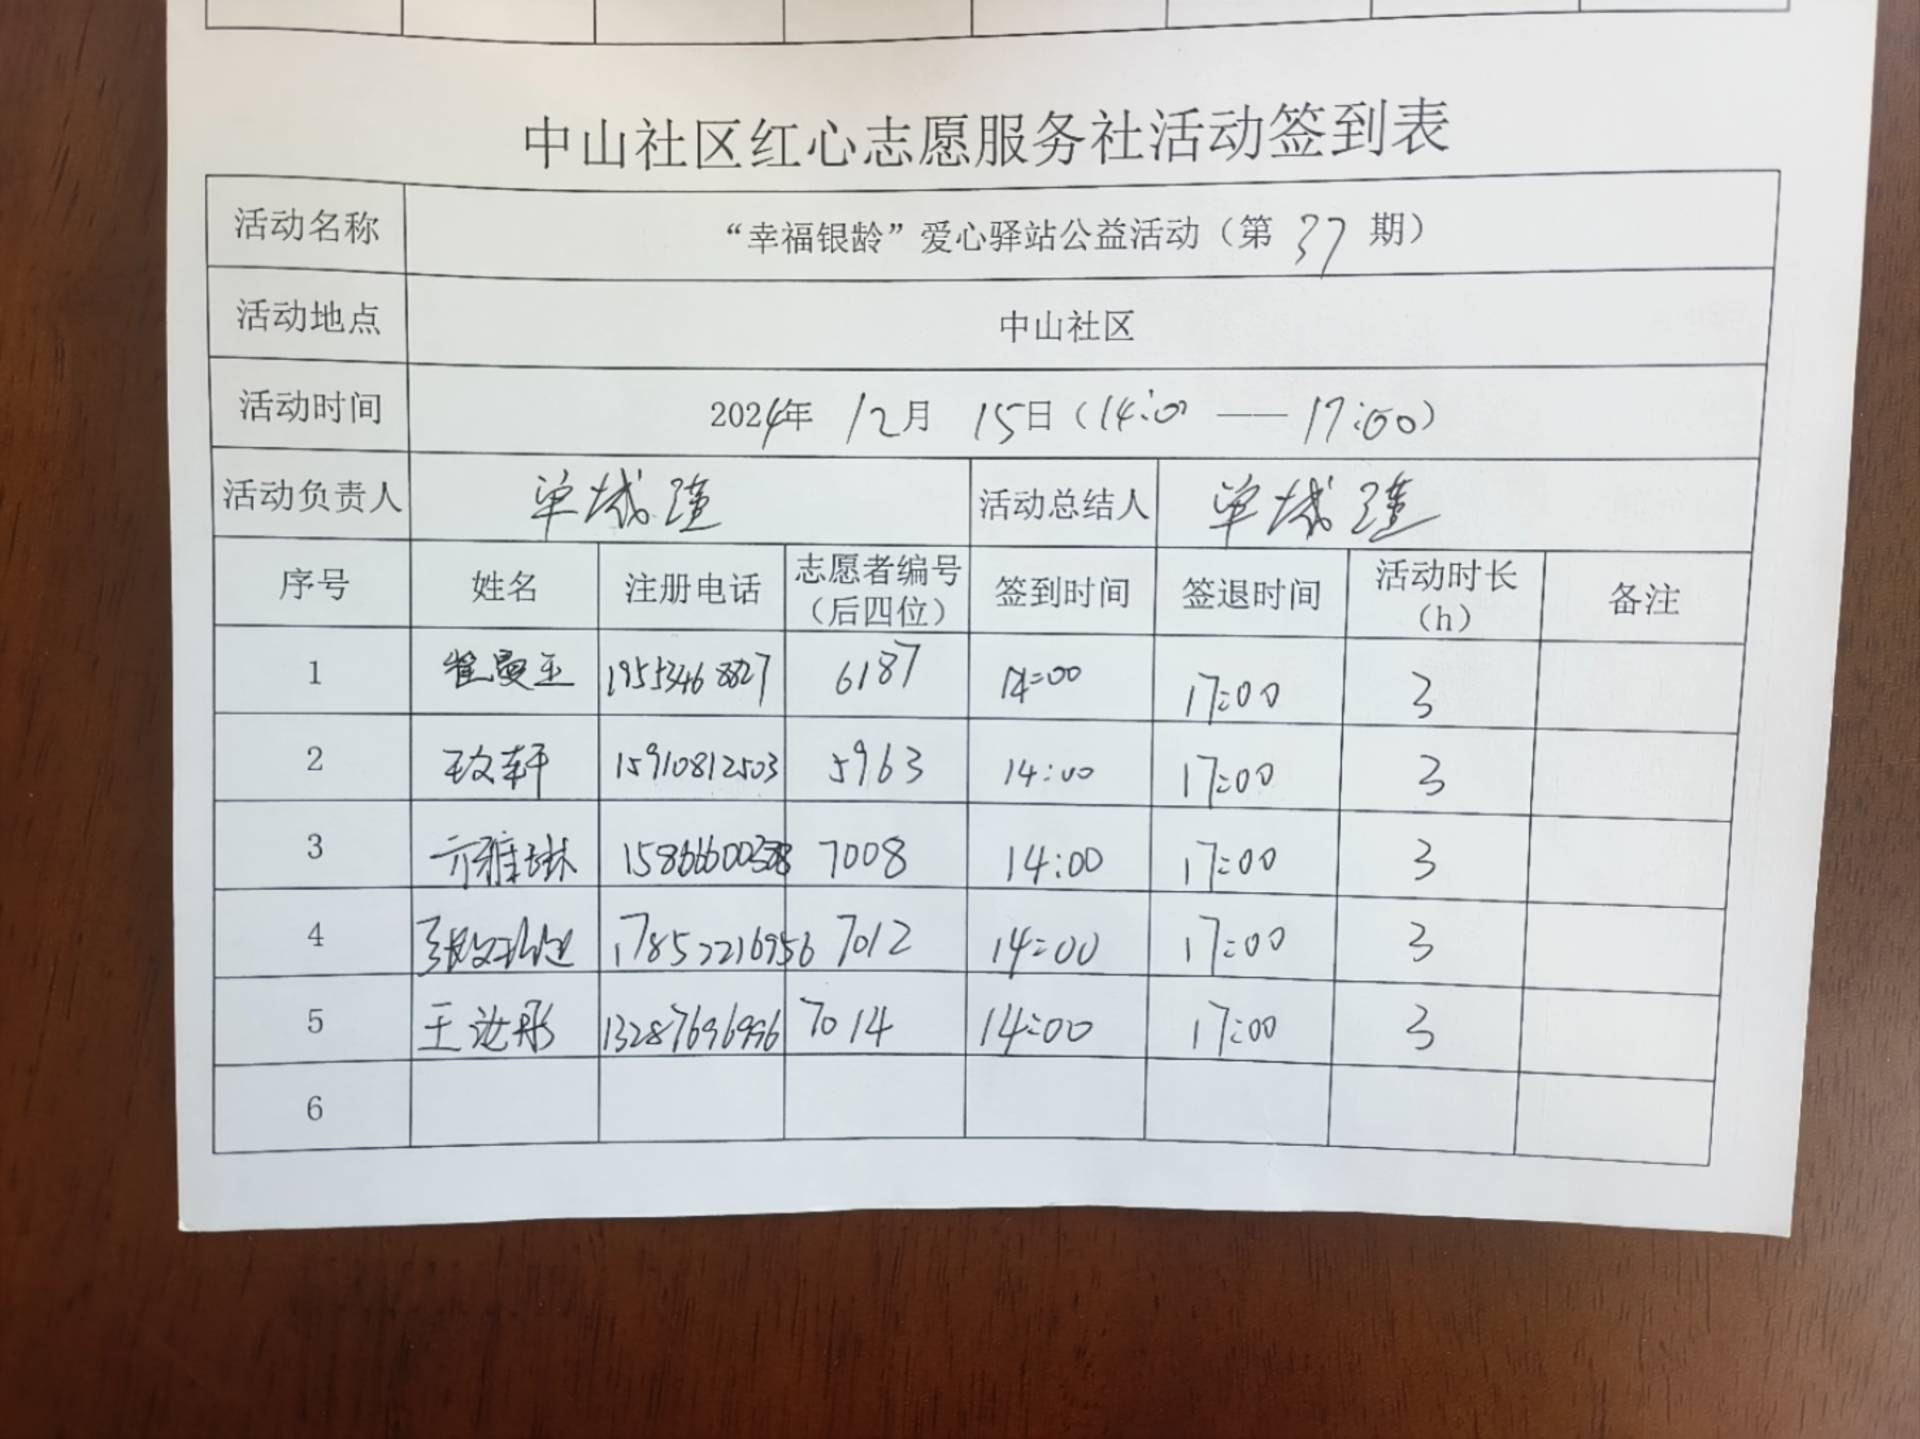 中山社区红心志愿服务社活动签到表
活动名称 “幸福银龄”爱心驿站公益活动（第 37 期）
活动地点 中山社区
活动时间 2024年 12月 15日（14:00 —— 17:00）
活动负责人 单城瑾 活动总结人 单城瑾
序号 姓名 注册电话 志愿者编号（后四位） 签到时间 签退时间 活动时长（h） 备注
1 崔曼玉 19553468827 6187 14:00 17:00 3
2 15910812503 5963 14:00 17:00 3
3 亓雅琳 7008 14:00 17:00 3
4 17852216956 7012 14:00 17:00 3
5 王 彤 13287696996 7014 14:00 17:00 3
6